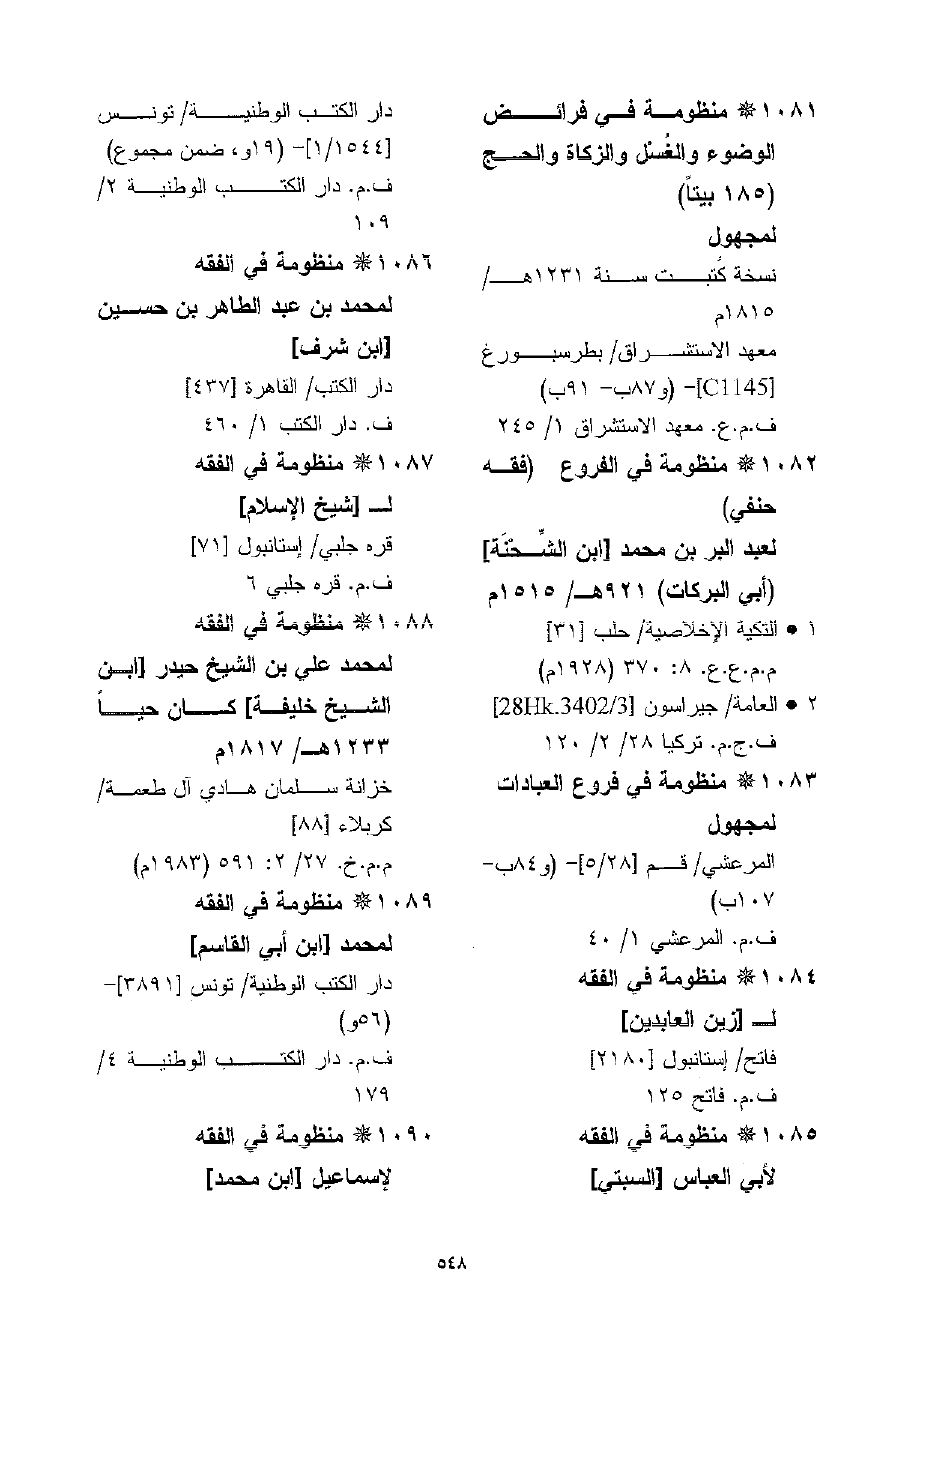 ١٠٨١ ❋ منظومة في فرائض
الوضوء والغُسْل والزكاة والحج
(١٨٥ بيتاً)
لمجهول
نسخة كُتبت سنة ١٢٣١هـ/
١٨١٥م
معهد الاستشراق/ بطرسبورغ
[C1145]- (و٨٧ب- ٩١ب)
ف.م.ع. معهد الاستشراق ١/ ٢٤٥
١٠٨٢ ❋ منظومة في الفروع (فقه
حنفي)
لعبد البر بن محمد [ابن الشِّحْنَة]
(أبي البركات) ٩٢١هـ/ ١٥١٥م
١ • التكية الإخلاصية/ حلب [٣١]
م.م.ع.ع. ٨: ٣٧٠ (١٩٢٨م)
٢ • العامة/ جيراسون [28Hk.3402/3]
ف.ج.م. تركيا ٢٨/ ٢/ ١٢٠
١٠٨٣ ❋ منظومة في فروع العبادات
لمجهول
المرعشي/ قم [٥/٢٨]- (و٨٤ب-
١٠٧ب)
ف.م. المرعشي ١/ ٤٠
١٠٨٤ ❋ منظومة في الفقه
لـ [زين العابدين]
فاتح/ إستانبول [٢١٨٠]
ف.م. فاتح ١٢٥
١٠٨٥ ❋ منظومة في الفقه
لأبي العباس [السبتي]
دار الكتب الوطنية/ تونس
[١/١٥٤٤]- (١٩و، ضمن مجموع)
ف.م. دار الكتب الوطنية ٢/
١٠٩
١٠٨٦ ❋ منظومة في الفقه
لمحمد بن عبد الطاهر بن حسين
[ابن شرف]
دار الكتب/ القاهرة [٤٣٧]
ف. دار الكتب ١/ ٤٦٠
١٠٨٧ ❋ منظومة في الفقه
لـ [شيخ الإسلام]
قره جلبي/ إستانبول [٧١]
ف.م. قره جلبي ٦
١٠٨٨ ❋ منظومة في الفقه
لمحمد علي بن الشيخ حيدر [ابن
الشيخ خليفة] كان حياً
١٢٣٣هـ/ ١٨١٧م
خزانة سلمان هادي آل طعمة/
كربلاء [٨٨]
م.م.خ. ٢٧/ ٢: ٥٩١ (١٩٨٣م)
١٠٨٩ ❋ منظومة في الفقه
لمحمد [ابن أبي القاسم]
دار الكتب الوطنية/ تونس [٣٨٩١]-
(٥٦و)
ف.م. دار الكتب الوطنية ٤/
١٧٩
١٠٩٠ ❋ منظومة في الفقه
لإسماعيل [ابن محمد]
٥٤٨